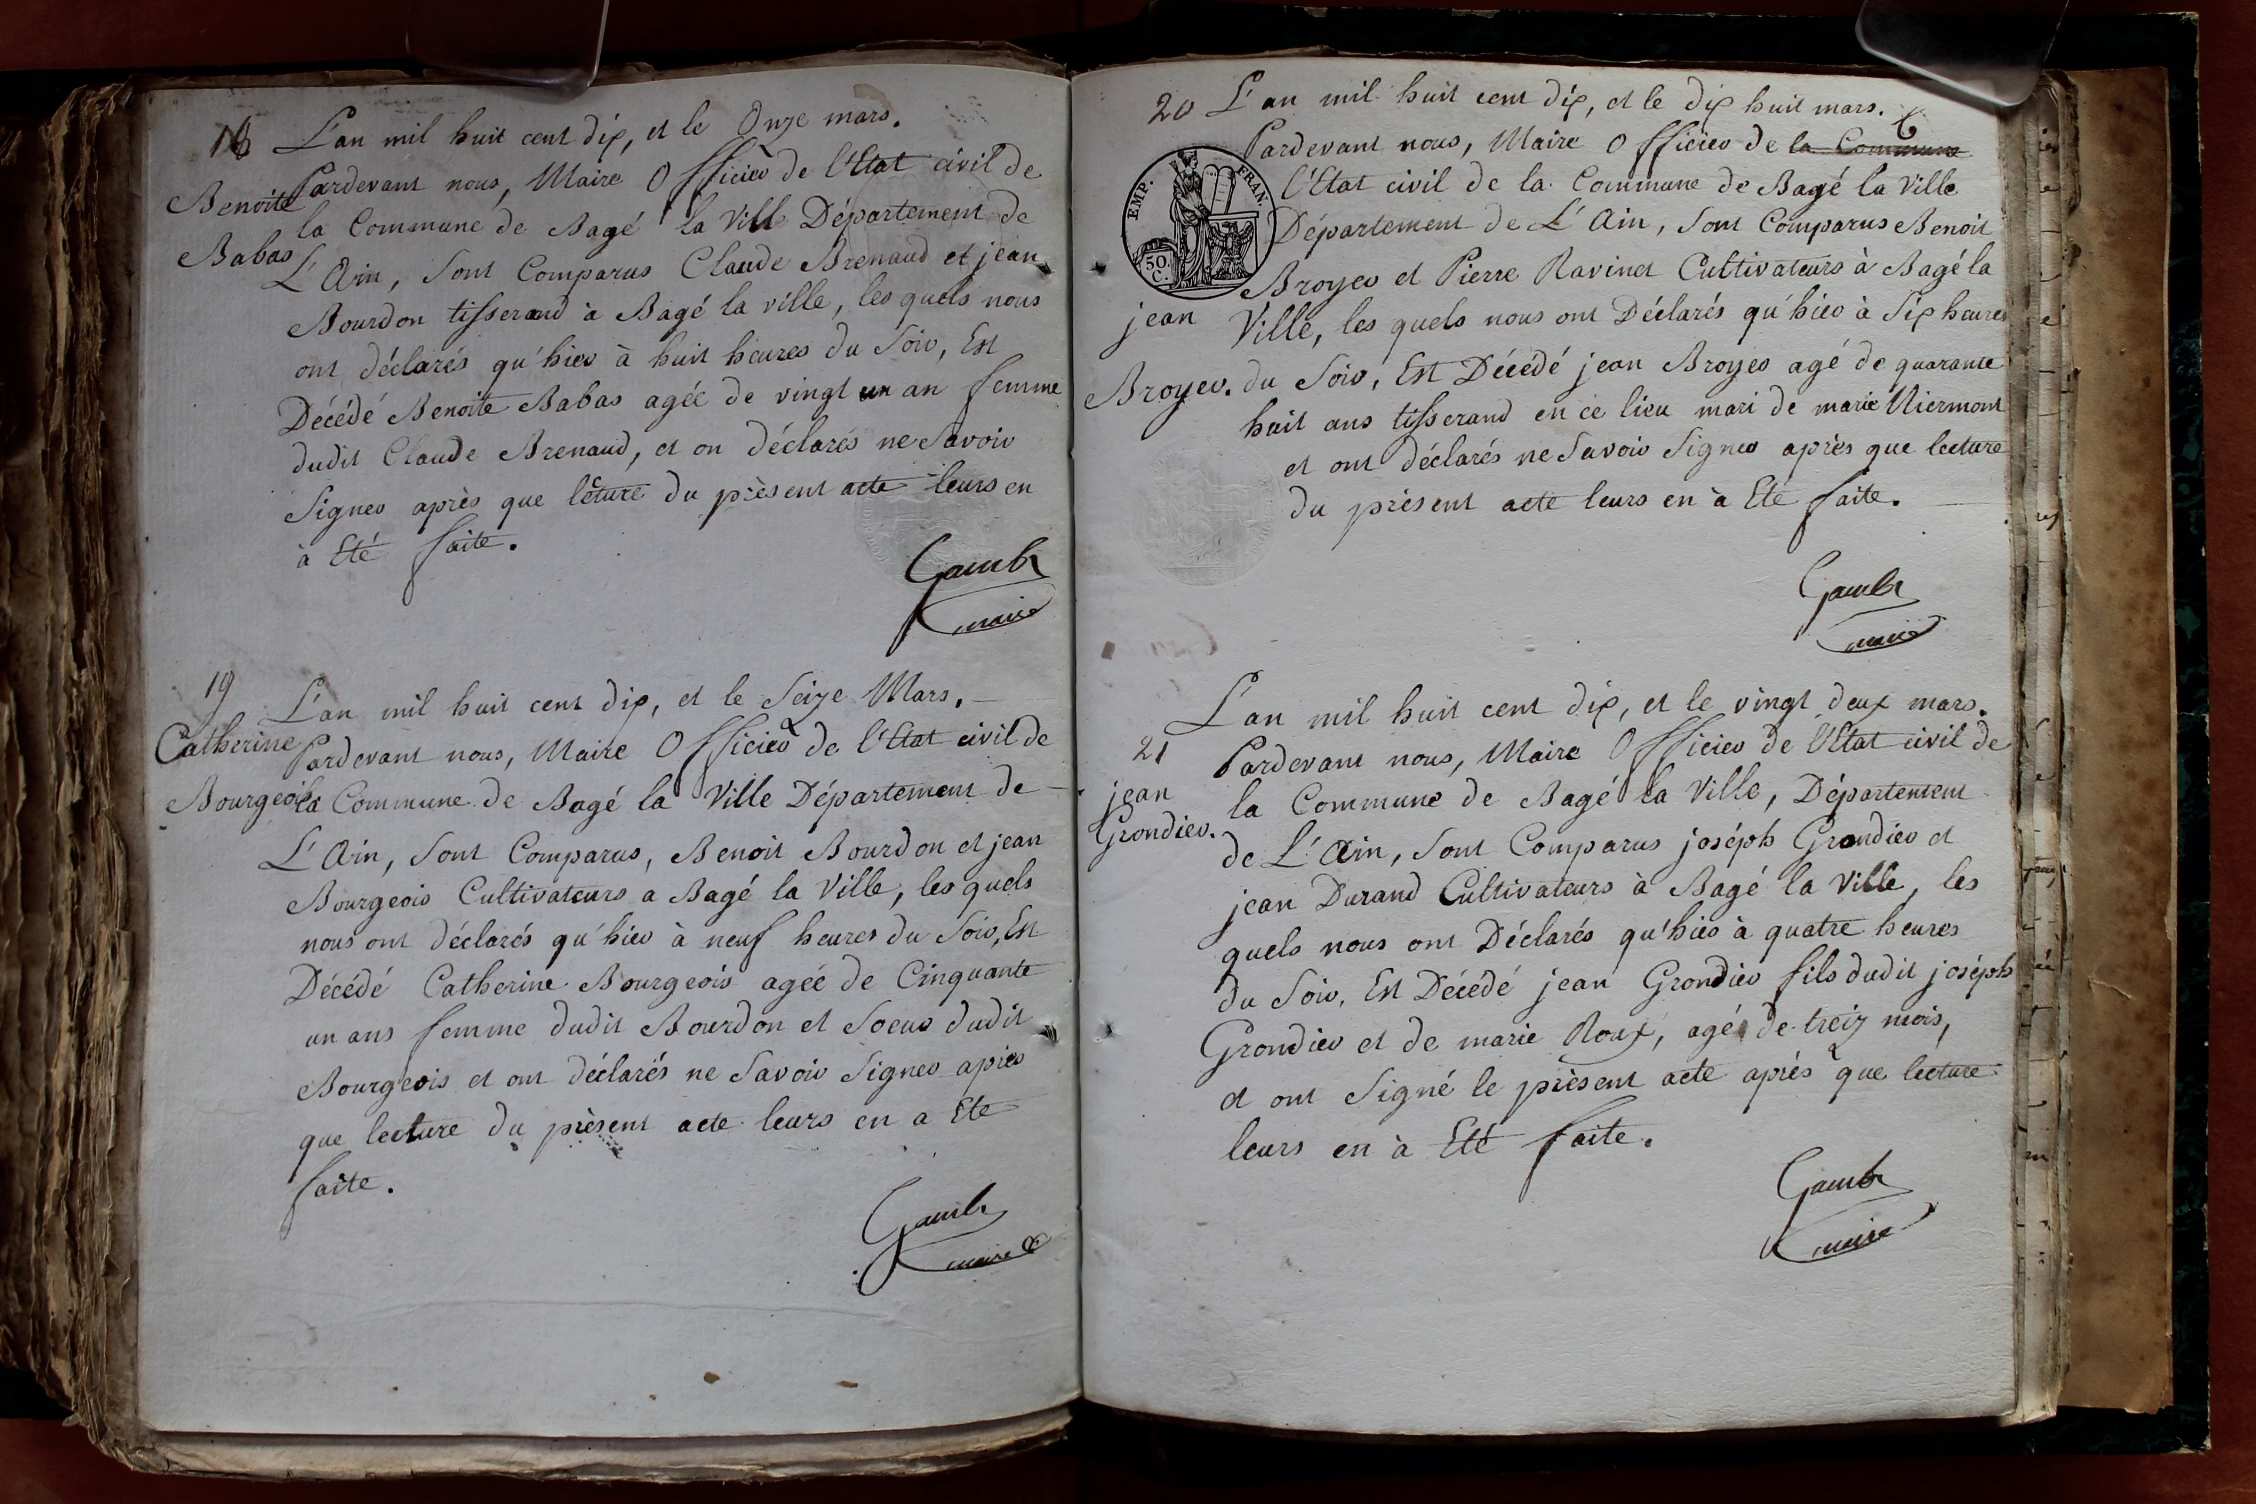 18
Benoite
Babas
L'an mil huit cent dix, et le Onze mars.
Pardevant nous, Maire Officier de l'Etat civil de
la Commune de Bagé la Ville Département de
L'Ain, Sont Comparus Claude Brenaud et jean
Bourdon tisserand à Bagé la ville, les quels nous
ont déclarés qu'hier à huit heures du Soir, Est
Décédé Benoite Babas agée de vingt un an femme
dudit Claude Brenaud, et on déclarés ne Savoir
Signer après que lecture du présent acte leurs en
à Eté faite.
Gamb
maire
19
Catherine
Bourgeois
L'an mil huit cent dix, et le Seize Mars.
Pardevant nous, Maire Officier de l'Etat civil de
la Commune de Bagé la Ville Département de
L'Ain, Sont Comparus, Benoit Bourdon et jean
Bourgeois Cultivateurs a Bagé la Ville, les quels
nous ont déclarés qu'hier à neuf heures du Soir, Est
Décédé Catherine Bourgeois agée de Cinquante
un ans femme dudit Bourdon et Soeur dudit
Bourgeois et ont déclarés ne Savoir Signer après
que lecture du présent acte leurs en a Eté
faite.
Gamb
maire
20
EMP. FRAN.
50.
C.
jean
Broyer.
L'an mil huit cent dix, et le dix huit mars.
Pardevant nous, Maire Officier de la Commune
l'Etat civil de la Commune de Bagé la Ville
Département de L'Ain, Sont Comparus Benoit
Broyer et Pierre Ravinet Cultivateurs à Bagé la
Ville, les quels nous ont Déclarés qu'hier à Six heures
du Soir, Est Décédé jean Broyer agé de quarante
huit ans tisserand en ce lieu mari de marie Niermont
et ont déclarés ne Savoir Signer après que lecture
du présent acte leurs en à Eté faite.
Gamb
maire
21
jean
Grondier.
L'an mil huit cent dix, et le vingt deux mars.
Pardevant nous, Maire Officier de l'Etat civil de
la Commune de Bagé la Ville, Département
de L'Ain, Sont Comparus joséph Grondier et
jean Durand Cultivateurs à Bagé la Ville, les
quels nous ont Déclarés qu'hier à quatre heures
du Soir, Est Décédé jean Grondier fils dudit joséph
Grondier et de marie Roux, agé de treiz mois,
et ont Signé le présent acte après que lecture
leurs en à Eté faite.
Gamb
maire